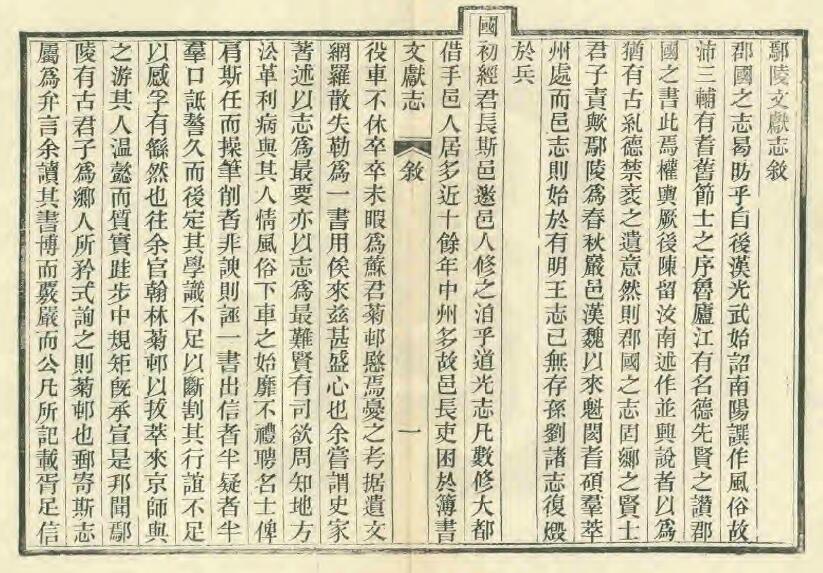 鄢陵文獻志敘
郡國之志昜昉乎自後漢光武始詔南陽譔作風俗故
沛三輔有耆舊節士之序魯廬江有名德先賢之讚郡
國之書此焉權輿厥後陳留汝南述作並興說者以爲
猶有古糺德禁衺之遺意然則郡國之志固鄉之賢士
君子責歟鄢陵爲春秋巖邑漢魏以來魁閎耆碩羣萃
州處而邑志則始於有明王志已無存孫劉諸志復燬
於兵
國初經君長斯邑邀邑人修之洎乎道光志凡數修大都
借手邑人居多近十餘年中州多故邑長吏困於簿書
文獻志
敘
一
役車不休卒卒未暇爲蘇君菊邨慇焉憂之考据遺文
網羅散失勒爲一書用俟來兹甚盛心也余嘗謂史家
著述以志爲最要亦以志爲最難賢有司欲周知地方
㳂革利病與其人情風俗下車之始靡不禮聘名士俾
肩斯任而操筆削者非諛則誣一書出信者半疑者半
羣口詆謷久而後定其學識不足以斷割其行誼不足
以感孚有繇然也往余官翰林菊邨以拔萃來京師與
之游其人温懿而質實跬步中規矩旣承宣是邦聞鄢
陵有古君子爲鄉人所矜式詢之則菊邨也郵寄斯志
屬爲弁言余讀其書博而覈嚴而公凡所記載胥足信